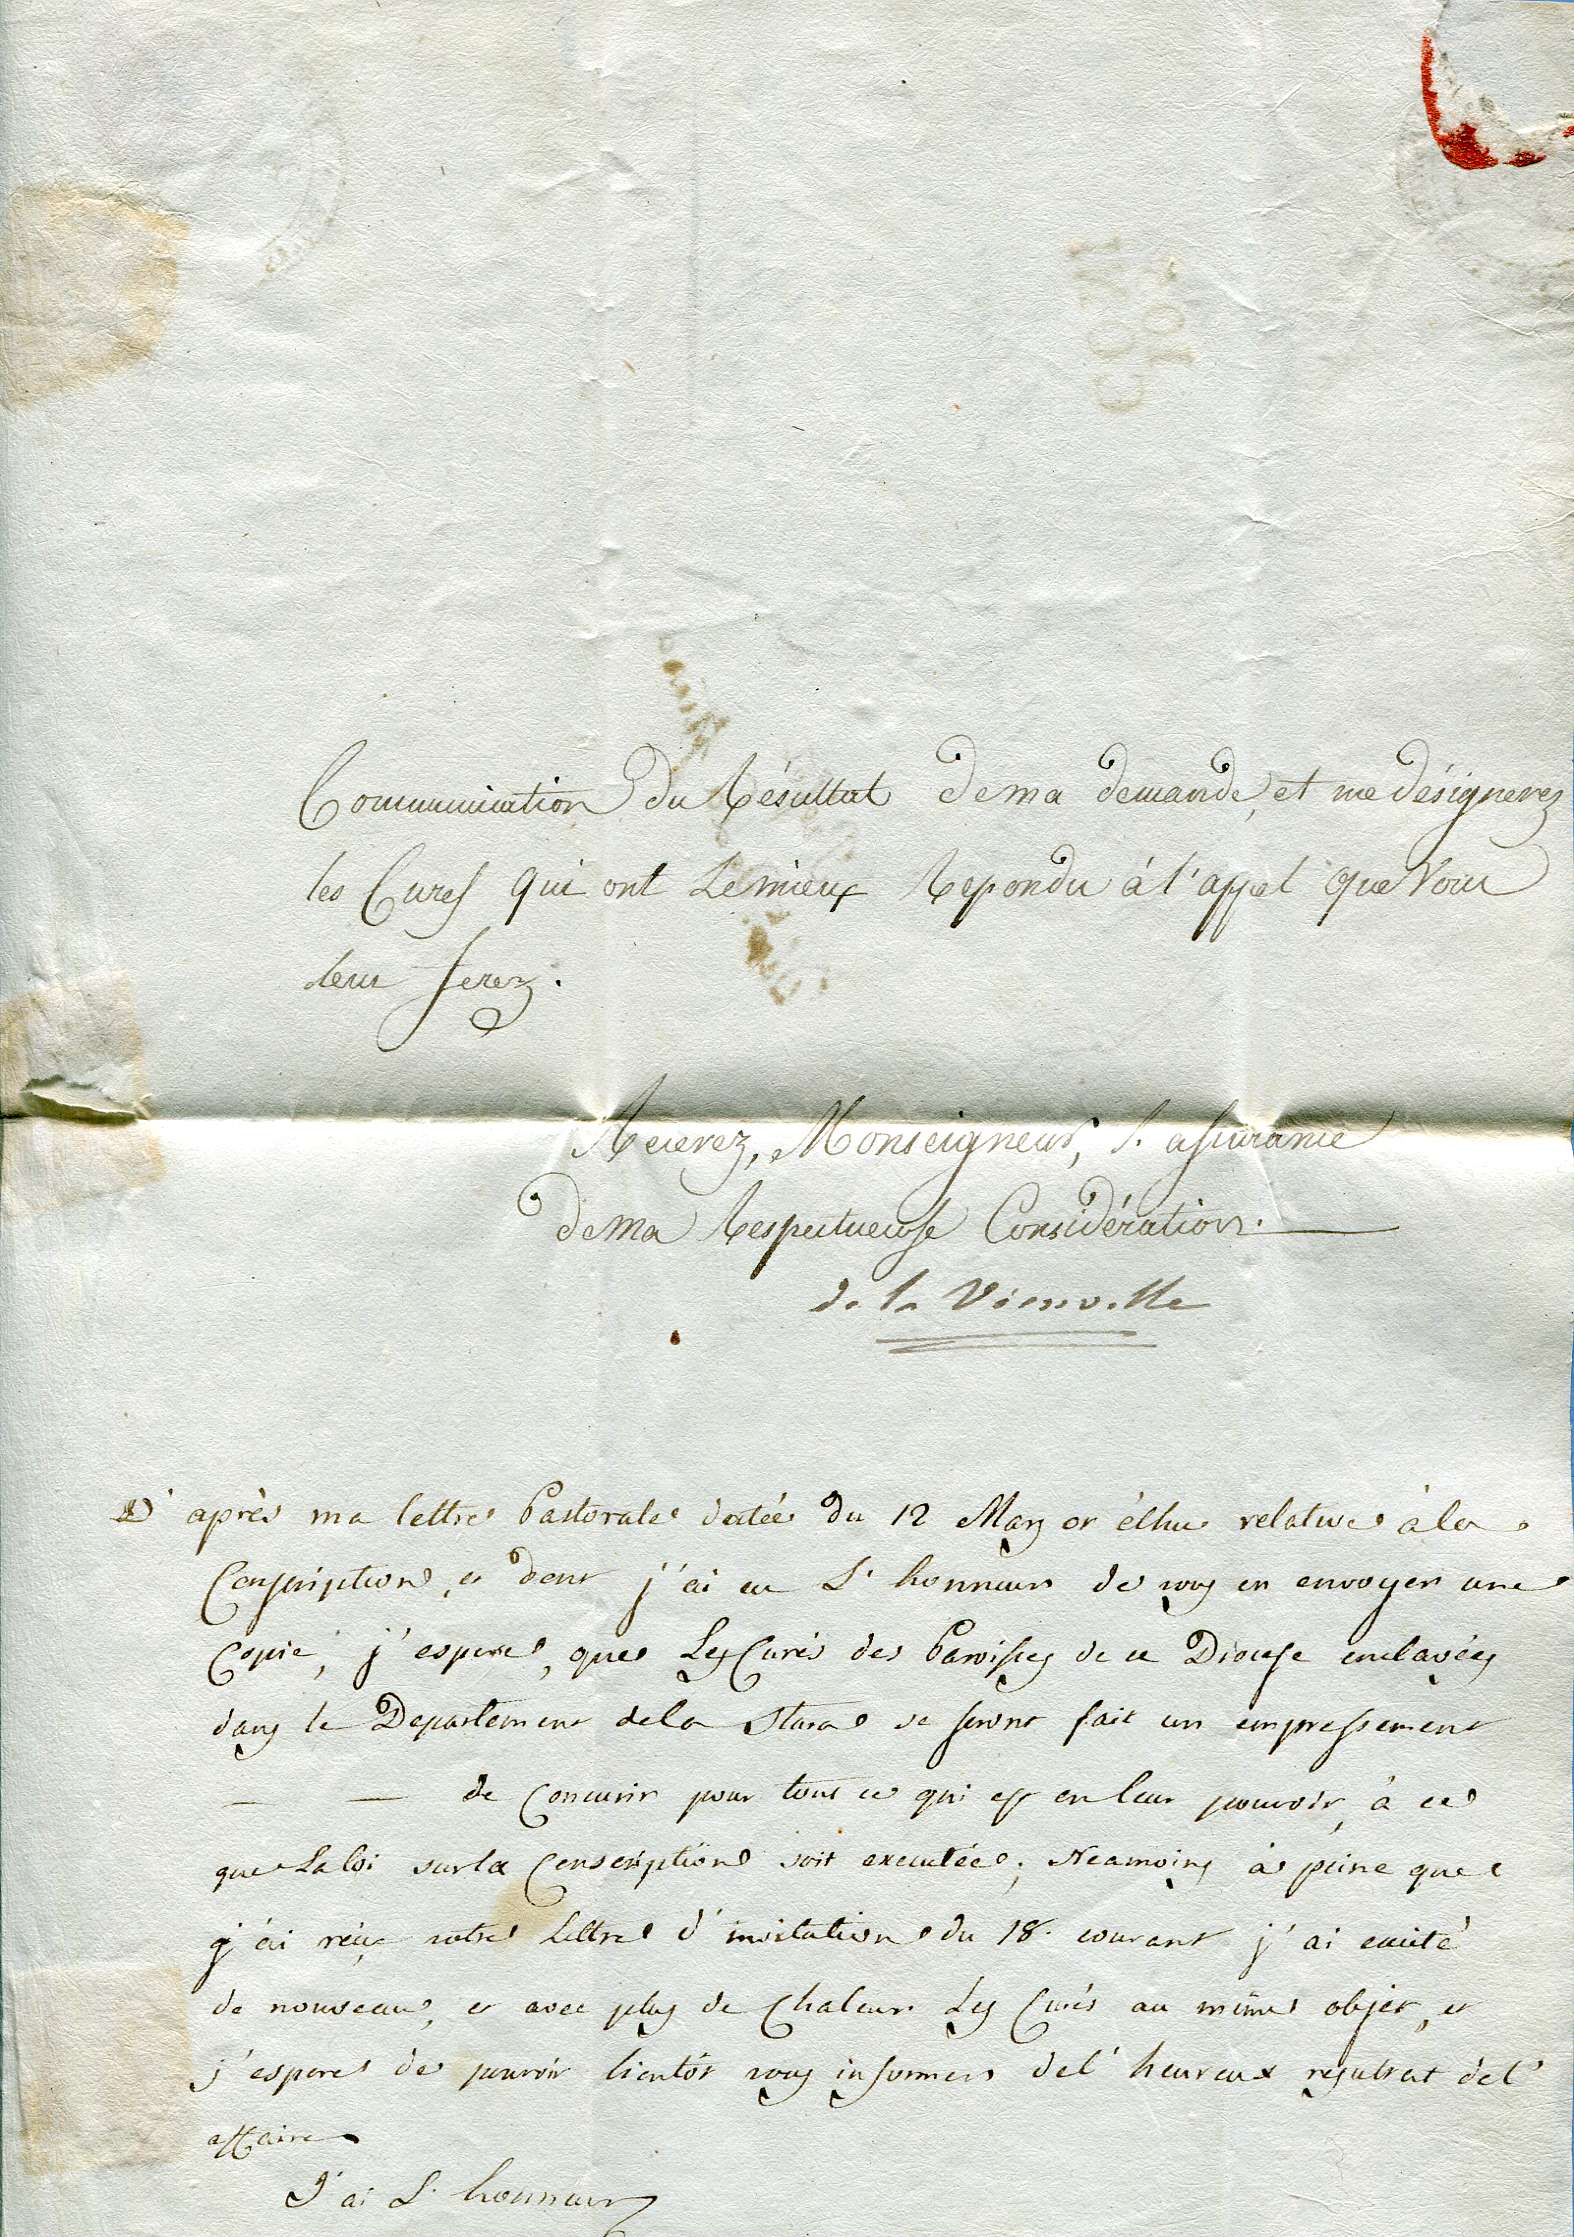 Communication du Résultat de ma demande, et me désignerez
les Curés qui ont le mieux Repondu à l'appel que Vous
leur ferez.
Recevez, Monseigneur, l'assurance
de ma Respectueuse Considération.
de la Vieuville
D'après ma lettre Pastorale datée du 12 Mars relative à la
Conscription, et dont j'ai eu L'honneur de vous en envoyer une
Copie, j'espere, que Les Curés des Paroisses de ce Diocese enclavées
dans le Departement de la Stura se seront fait un empressement
de Concurir pour tout ce qui est en leur pouvoir, à ce
que La loi sur la Conscription soit executée; Neamoins à peine que
j'ai reçue votre Lettre d'invitation du 18. courant j'ai excité
de nouveau, et avec plus de Chaleur Les Curés au même objet, et
j'espere de pouvoir bientôt vous informer de l'heureux resultat de l'
affaire
J'ai L'honneur